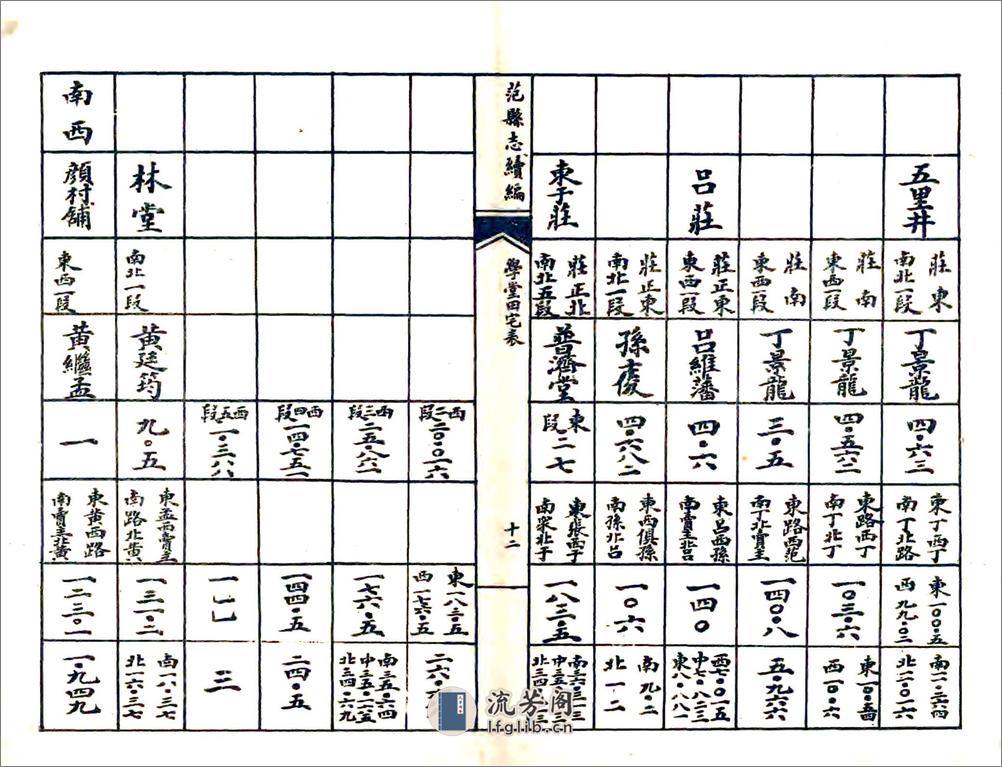 五里井
莊東
南北一段
丁景龍
四·六三
東丁西丁
南丁北路
東一〇〇·五
西九九·〇二
南一一·六四
北一一〇·一六
莊南
東西一段
丁景龍
四·五六二
東路西丁
南丁北丁
一〇三·六
東一〇·五四
西一〇·六
莊南
東西一段
丁景龍
三·五
東路西范
南丁北賣主
一四〇·八
五·九六六
呂莊
莊正東
東西一段
呂維藩
四·六
東呂西孫
南賣主北呂
一四〇
西七·〇一五
中七·八二三
東八·八八一
莊正東
南北一段
孫士俊
四·六八二
東西俱孫
南孫北呂
一〇六
南九·二
北一二
東于莊
莊正北
南北五段
普濟堂
東段二七
東張西于
南眾北于
一八三·五
范縣志續編
學堂田宅表
十二
西二段二〇·〇一六
東一八三·五
西一七六·五
西三段二五·八六二
一七六·五
南三五·六四
西四段一四·七五一
一四四·五
二四·五
西五段一·三八八
三
林堂
南北一段
黃廷筠
九·〇五
東孟西賣主
南路北黃
一三一·二
南一八·三七
北一六·三七
南西
顏村鋪
東西一段
黃繼孟
一
東黃西路
南賣主北黃
一二三·一
一·九四九
流芳阁
lfglib.cn